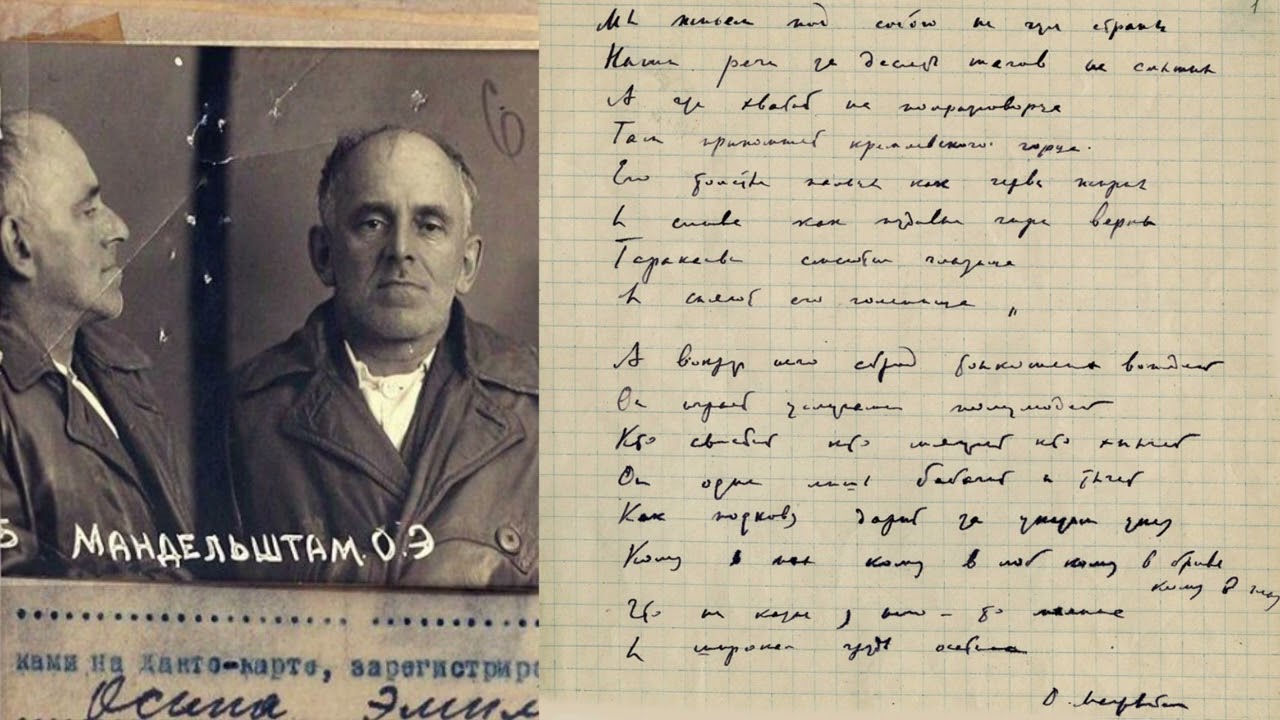 6
5 МАНДЕЛЬШТАМ.О.Э
ками на дакто-карте, зарегистриро
Осипа Эмил
1
Мы живем под собою не чуя страны
Наши речи за десять шагов не слышны
А где хватит на полразговорца
Там припомнят кремлевского горца.
Его толстые пальцы как черви жирны
И слова как пудовые гири верны
Тараканьи смеются глазища
И сияют его голенища
А вокруг него сброд тонкошеих вождей
Он играет услугами полулюдей
Кто свистит кто мяучит кто хнычет
Он один лишь бабачит и тычет
Как подкову дарит за указом указ
Кому в пах кому в лоб кому в бровь
кому в глаз
Что ни казнь у него - то малина
И широкая грудь осетина
О. Мандельштам